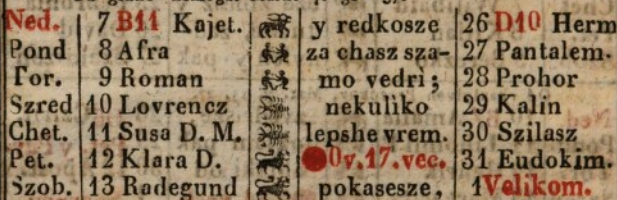 Ned. 7 B11 Kajet. y redkosze 26 D10 Herm
Pond 8 Afra za chasz sza- 27 Pantalem.
Tor. 9 Roman mo vedri; 28 Prohor
Szred 10 Lovrencz nekuliko 29 Kalin
Chet. 11 Susa D. M. lepshe vrem. 30 Szilasz
Pet. 12 Klara D. Ov. 17. vec. 31 Eudokim.
Szob. 13 Radegund pokasesze, 1 Velikom.